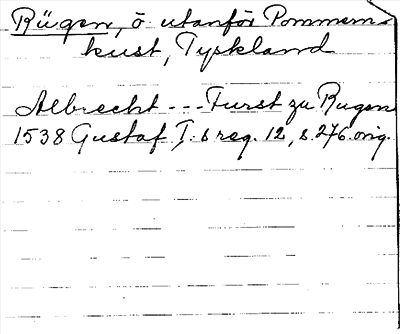 Rügen, ö utanför Pommerns
kust, Tyskland
Albrecht --- Furst zu Rugen
1538 Gustaf I:s reg. 12, s. 276. orig.